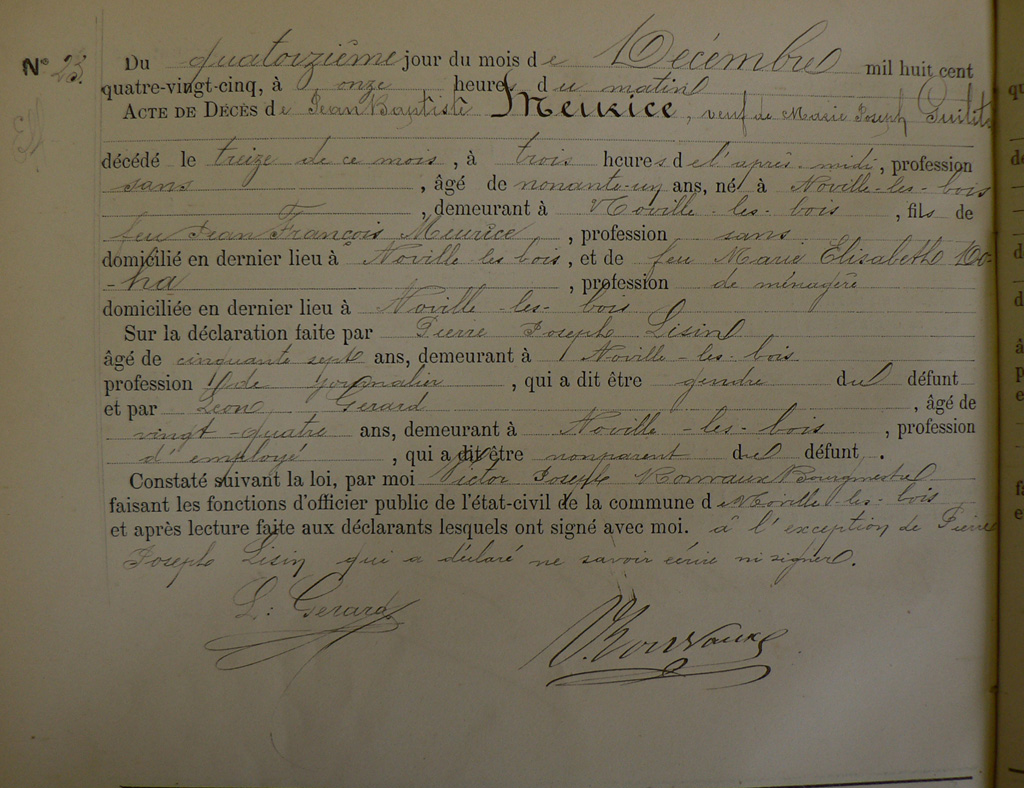 N° 23. Du quatorzième jour du mois de Décembre mil huit cent
quatre-vingt-cinq, à onze heures du matin
ACTE DE DÉCÈS de Jean Baptiste Meurice, veuf de Marie Joseph
décédé le treize de ce mois, à trois heures de l'après-midi, profession
sans, âgé de nonante-un ans, né à Noville-les-bois
, demeurant à Noville-les-bois, fils de
feu Jean François Meurice, profession sans
domicilié en dernier lieu à Noville les bois, et de feu Marie Elisabeth
, profession de ménagère
domiciliée en dernier lieu à Noville-les-bois
Sur la déclaration faite par Pierre Joseph Lisin
âgé de cinquante sept ans, demeurant à Noville-les-bois
profession de journalier, qui a dit être gendre du défunt
et par Léon Gerard, âgé de
vingt-quatre ans, demeurant à Noville-les-bois, profession
d'employé, qui a dit être nonparent du défunt.
Constaté suivant la loi, par moi Victor Joseph Bourgmestre
faisant les fonctions d'officier public de l'état-civil de la commune de Noville-les-bois
et après lecture faite aux déclarants lesquels ont signé avec moi. à l'exception de Pierre
Joseph Lisin qui a déclaré ne savoir écrire ni signer.
L: Gerard